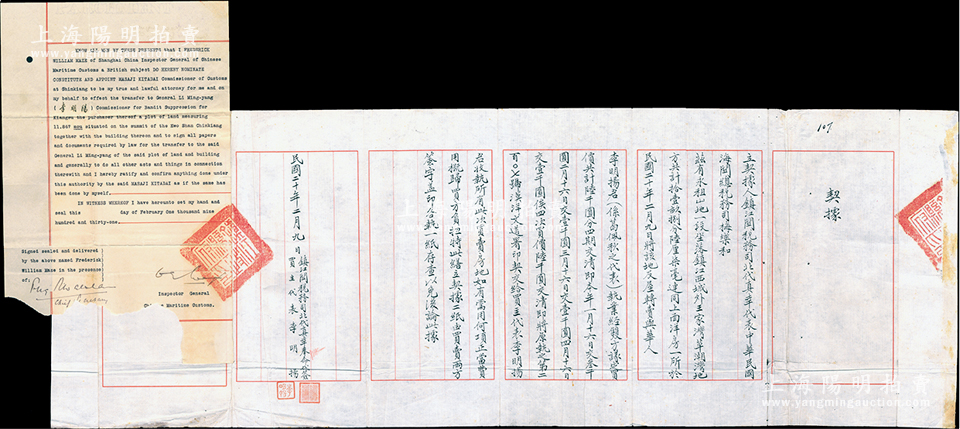 上海陽明拍賣
KNOW ALL MEN BY THESE PRESENTS that I FREDERICK
WILLIAM MAZE of Shanghai China Inspector General of Chinese
Maritime Customs a British subject DO HEREBY NOMINATE
CONSTITUTE AND APPOINT MASAJI KITADAI Commissioner of Customs
at Chinkiang to be my true and lawful attorney for me and on
my behalf to effect the transfer to General Li Ming-yang
(李明揚) Commissioner for Bandit Suppression for
Kiangsu the purchaser thereof a plot of land measuring
11.807 mou situated on the summit of the Chinkiang
together with the building thereon and to sign all papers
and documents required by law for the transfer to the said
General Li Ming-yang of the said plot of land and building
and generally to do all other acts and things in connection
therewith and I hereby ratify and confirm anything done under
this authority by the said MASAJI KITADAI as if the same has
been done by myself.
IN WITNESS WHEREOF I have hereunto set my hand and
seal this day of February One thousand nine
hundred and thirty-one.
Signed sealed and delivered
by the above named Frederick
William Maze in the presence
of:
Inspector General
Maritime Customs.
107
契據
立契據人鎮江關稅務司北代真幸代表中華民國
海關總稅務司梅樂和
茲有永租山地一段坐落鎮江西城外王家灣草湖灣地
方共計拾壹畝捌分陸厘柒毫連同上面洋房一所於
民國二十年二月九日將該地及屋轉賣與華人
李明揚名執業經雙方議定賣
價共計陸千圓分四期交清即本年一月十六日交叁千
圓二月十六日交壹千圓三月十六日交壹千圓四月十六日
交壹千圓俟四次買價陸千圓交清即將原執之第二
百〇 號漢洋文道署印契交給買主代表李明揚
名收執所有此次買賣房地如有當用何項正當費
用概歸買方負担特此繕立契據二紙由買賣兩方
簽字蓋印各執一紙存查以免後論此據
民國二十年二月九日 鎮江關稅務司北代真幸
買主代表李明揚
上海陽明拍賣
www.yangmingauction.com